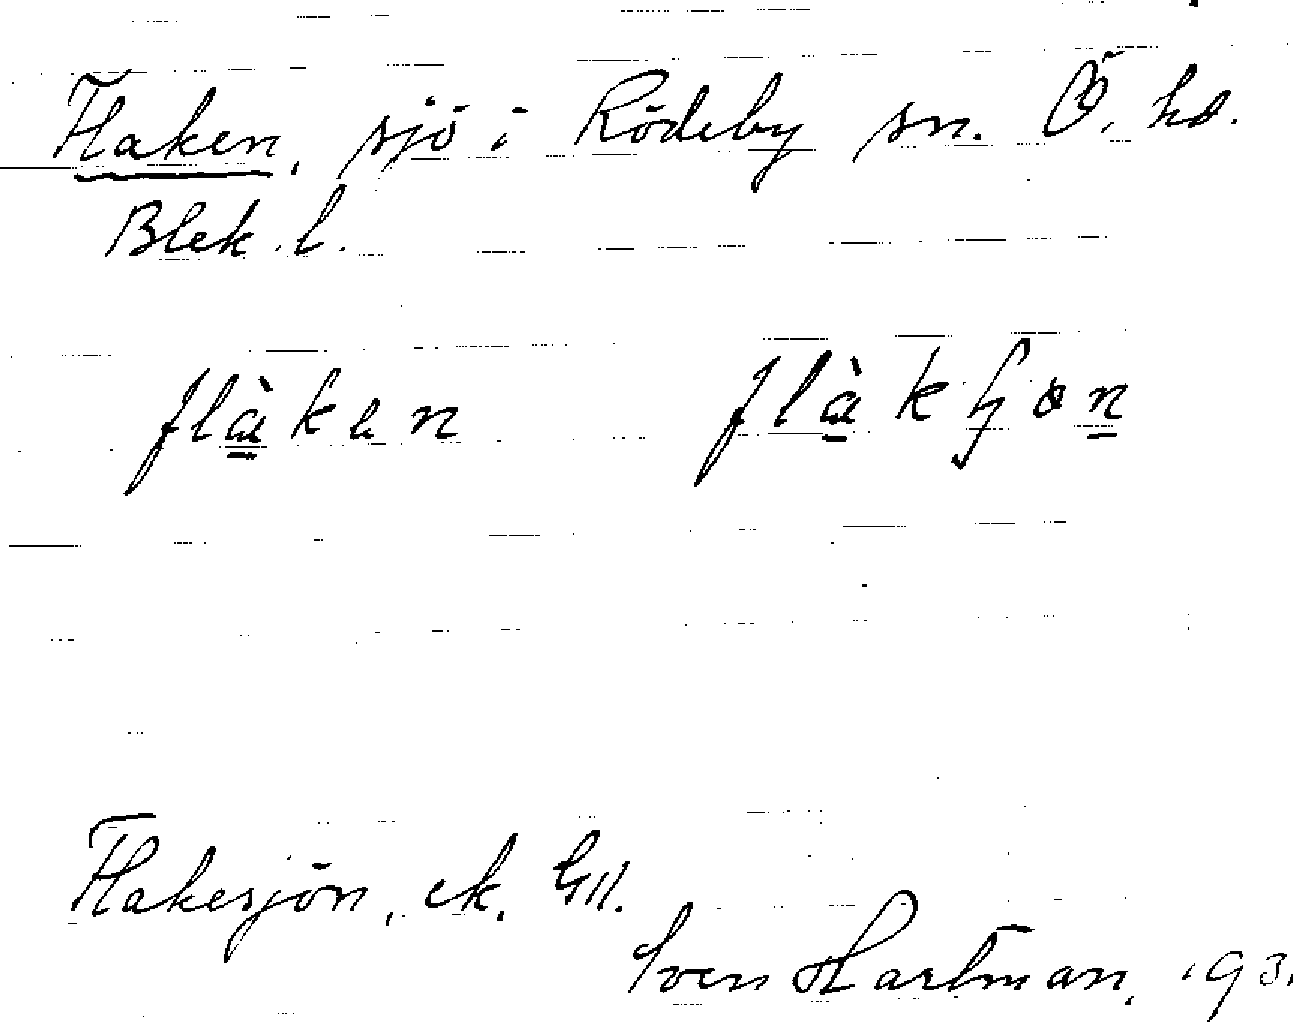 Flaken, sjö i Rödeby sn. Ö. hd.
Blek. l.
flàken flàkʃɷn
Flakesjön, ek.
Sven Hartman, 193.